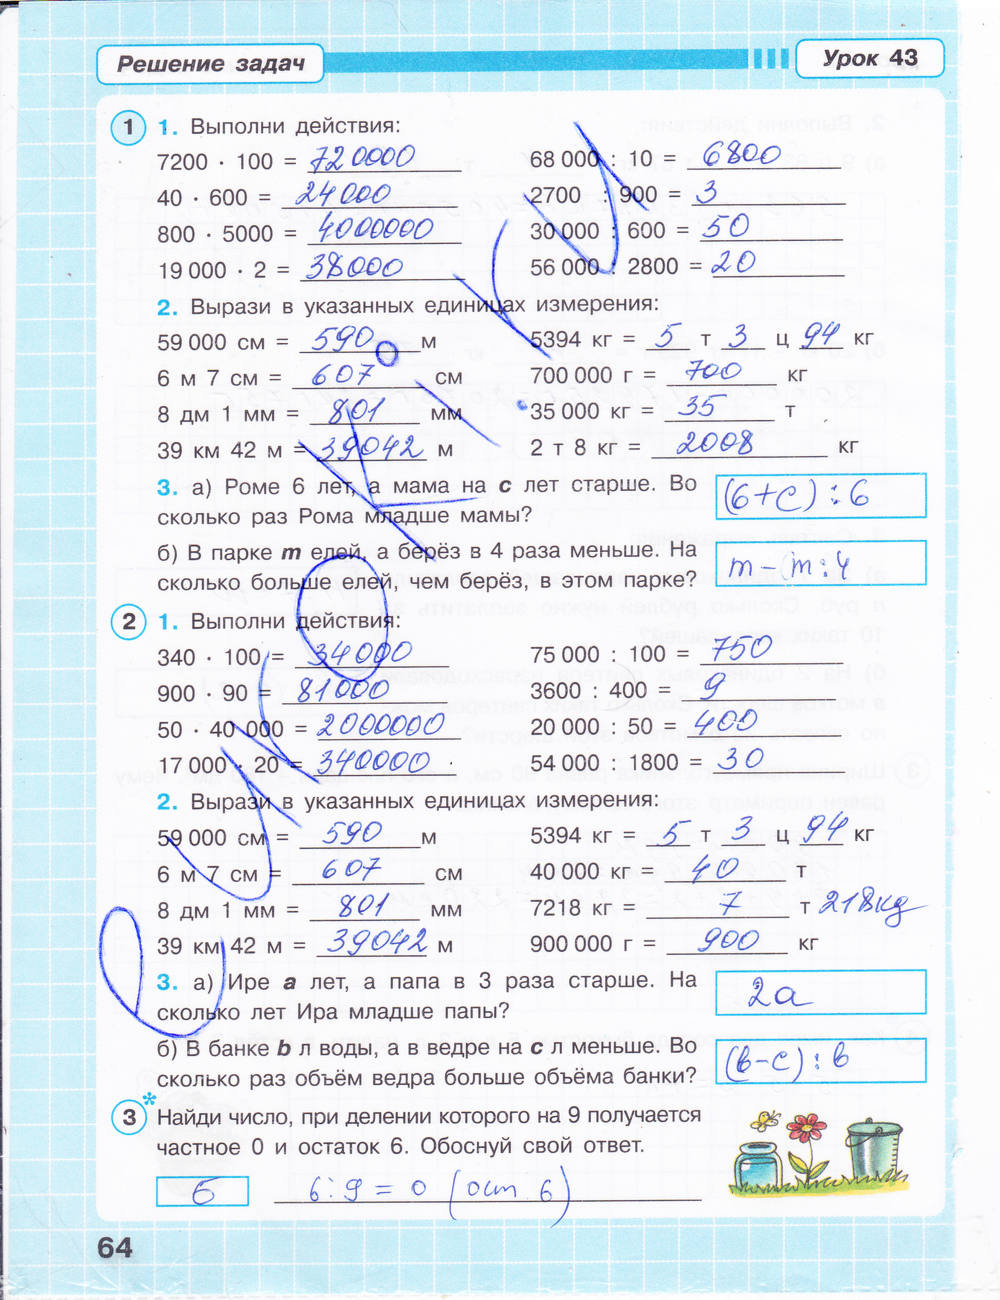 Решение задач
Урок 43
1 1. Выполни действия:
7200 · 100 = 720000
68 000 : 10 = 6800
40 · 600 = 24000
2700 : 900 = 3
800 · 5000 = 4000000
30 000 : 600 = 50
19 000 · 2 = 38000
56 000 : 2800 = 20
2. Вырази в указанных единицах измерения:
59 000 см = 590 м
5394 кг = 5 т 3 ц 94 кг
6 м 7 см = 607 см
700 000 г = 700 кг
8 дм 1 мм = 801 мм
35 000 кг = 35 т
39 км 42 м = 39042 м
2 т 8 кг = 2008 кг
3. а) Роме 6 лет, а мама на с лет старше. Во
сколько раз Рома младше мамы?
(6+с) : 6
б) В парке m елей, а берёз в 4 раза меньше. На
сколько больше елей, чем берёз, в этом парке?
m - m : 4
2 1. Выполни действия:
340 · 100 = 34000
75 000 : 100 = 750
900 · 90 = 81000
3600 : 400 = 9
50 · 40 000 = 2000000
20 000 : 50 = 400
17 000 · 20 = 340000
54 000 : 1800 = 30
2. Вырази в указанных единицах измерения:
59 000 см = 590 м
5394 кг = 5 т 3 ц 94 кг
6 м 7 см = 607 см
40 000 кг = 40 т
8 дм 1 мм = 801 мм
7218 кг = 7 т 218кг
39 км 42 м = 39042 м
900 000 г = 900 кг
3. а) Ире а лет, а папа в 3 раза старше. На
сколько лет Ира младше папы?
2а
б) В банке b л воды, а в ведре на с л меньше. Во
сколько раз объём ведра больше объёма банки?
(b-c) : b
3* Найди число, при делении которого на 9 получается
частное 0 и остаток 6. Обоснуй свой ответ.
6
6 : 9 = 0 (ост 6)
64